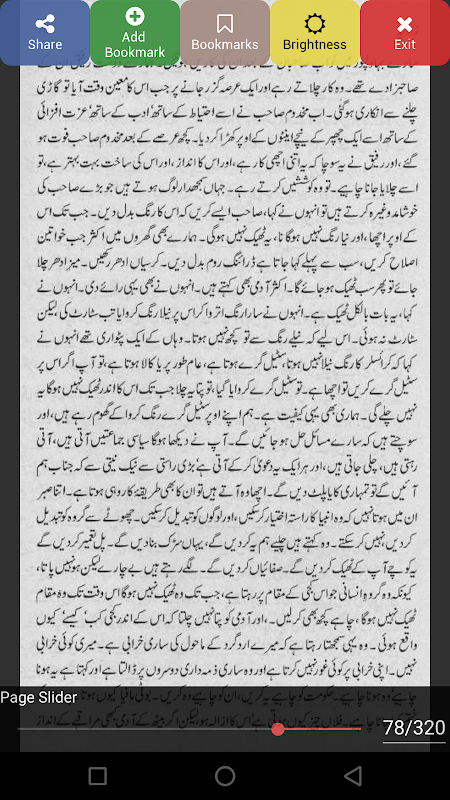 Share
Add
Bookmark
Bookmarks
Brightness
Exit
صاحبزادے تھے۔ وہ کار چلاتے رہے اور ایک عرصہ گزر جانے پر جب اس کا معین وقت آیا تو گاڑی
چلنے سے انکاری ہو گئی۔ اب مخدوم صاحب نے اسے احتیاط کے ساتھ' ادب کے ساتھ' عزت افزائی
کے ساتھ' اسے ایک چھپر کے نیچے اینٹوں کے اوپر کھڑا کر دیا۔ کچھ عرصے کے بعد مخدوم صاحب فوت ہو
گئے، اور رفیق نے یہ سوچا کہ یہ اتنی اچھی کار ہے، اور اس کا انداز، اور اس کی ساخت بہت بہتر ہے، تو
اسے چلایا جانا چاہیے۔ تو وہ کوششیں کرتے رہے۔ جہاں سمجھدار لوگ ہوتے ہیں جو بڑے صاحب کی
خوشامد وغیرہ کرتے ہیں تو انہوں نے کہا، صاحب ایسے کریں کہ اس کا رنگ بدل دیں۔ جب تک اس
کے اوپر اچھا، اور نیا رنگ نہیں ہو گا نا، یہ ٹھیک نہیں ہو گی۔ ہمارے بھی گھروں میں اکثر جب خواتین
اصلاح کریں، سب سے پہلے کہا جاتا ہے ڈرائنگ روم بدل دیں۔ کرسیاں ادھر رکھیں۔ میز ادھر چلا
جائے تو پھر سب ٹھیک ہو جائے گا۔ اکثر آدمی بھی کہتے ہیں۔ انہوں نے بھی یہی رائے دی۔ انہوں نے
کہا، یہ بات بالکل ٹھیک ہے۔ انہوں نے سارا رنگ اتروا کر اس پر نیلا رنگ کروایا تب سٹارٹ کی، لیکن
سٹارٹ نہ ہوئی۔ اس لیے کہ نیلے رنگ سے تو کچھ نہیں ہوتا۔ وہاں کے ایک پٹواری تھے انہوں نے
کہا کہ کرائسلر کا رنگ نیلا نہیں ہوتا، سٹیل گرے ہوتا ہے، عام طور پر یا کالا ہوتا ہے، تو آپ اگر اس پر
سٹیل گرے کریں تو اچھا ہے۔ تو سٹیل گرے کروایا گیا، تو پتا یہ چلا جب تک اس کا اندر ٹھیک نہیں ہو گا یہ
نہیں چلے گی۔ ہماری بھی یہی کیفیت ہے۔ ہم اپنے اوپر سٹیل گرے رنگ کروا کے گھوم رہے ہیں، اور
سوچتے ہیں کہ سارے مسائل حل ہو جائیں گے۔ آپ نے دیکھا ہو گا سیاسی جماعتیں آتی ہیں، آتی
رہتی ہیں، چلی جاتی ہیں، اور ہر ایک یہ دعویٰ کر کے آتی ہے' بڑی راستی سے نیک نیتی سے کہ جناب ہم
آئیں گے تو تمہاری کایا پلٹ دیں گے۔ اچھا وہ آتے ہیں تو ان کا بھی طریقۂ کار وہی ہوتا ہے۔ اتنا صبر
ان میں ہوتا نہیں کہ وہ انبیا کا راستہ اختیار کر سکیں، اور لوگوں کو تبدیل کر سکیں۔ چھوٹے سے گروہ کو تبدیل
کر دیں، نہیں کر سکتے۔ وہ کہتے ہیں چلیے ہم یہ کر دیں گے، یہاں سڑک بنا دیں گے۔ پل تعمیر کر دیں گے
یہ کوچے آپ کے ٹھیک کر دیں گے۔ صفائیاں کر دیں گے۔ لگے رہتے ہیں بے چارے لیکن ہو نہیں پاتا،
کیونکہ وہ گروہِ انسانی جو اس بجی کے مقام پر رہتا ہے، جب تک وہ ٹھیک نہیں ہو گا اس وقت تک وہ مقام
ٹھیک نہیں ہو گا، چاہے کچھ بھی کر لیں۔، اور آدمی کو پتا نہیں چلتا کہ اس کے اندر کجی کب' کیسے' کیوں
واقع ہوئی۔ وہ یہی سمجھتا رہتا ہے کہ میرے اردگرد کے ماحول کی ساری خرابی ہے۔ میری کوئی خرابی
نہیں۔ اپنی خرابی پر کوئی غور نہیں کرتا ہے اور وہ ساری ذمہ داری دوسروں پر ڈالتا ہے اور کہتا ہے یہ ہونا
Page Slider
78/320